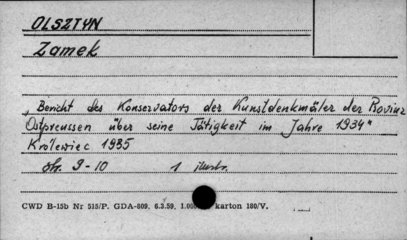 OLSZTYN
Zamek
„Bericht des Konservators der Kunstdenkmäler der Rovinz
Ostpreussen über seine Tätigkeit im Jahre 1934"
Królewiec 1935
str. 9-10 1 ilustr.
CWD B-15b Nr 515/P. GDA-809. 6.3.59, 1.000 karton 180/V.